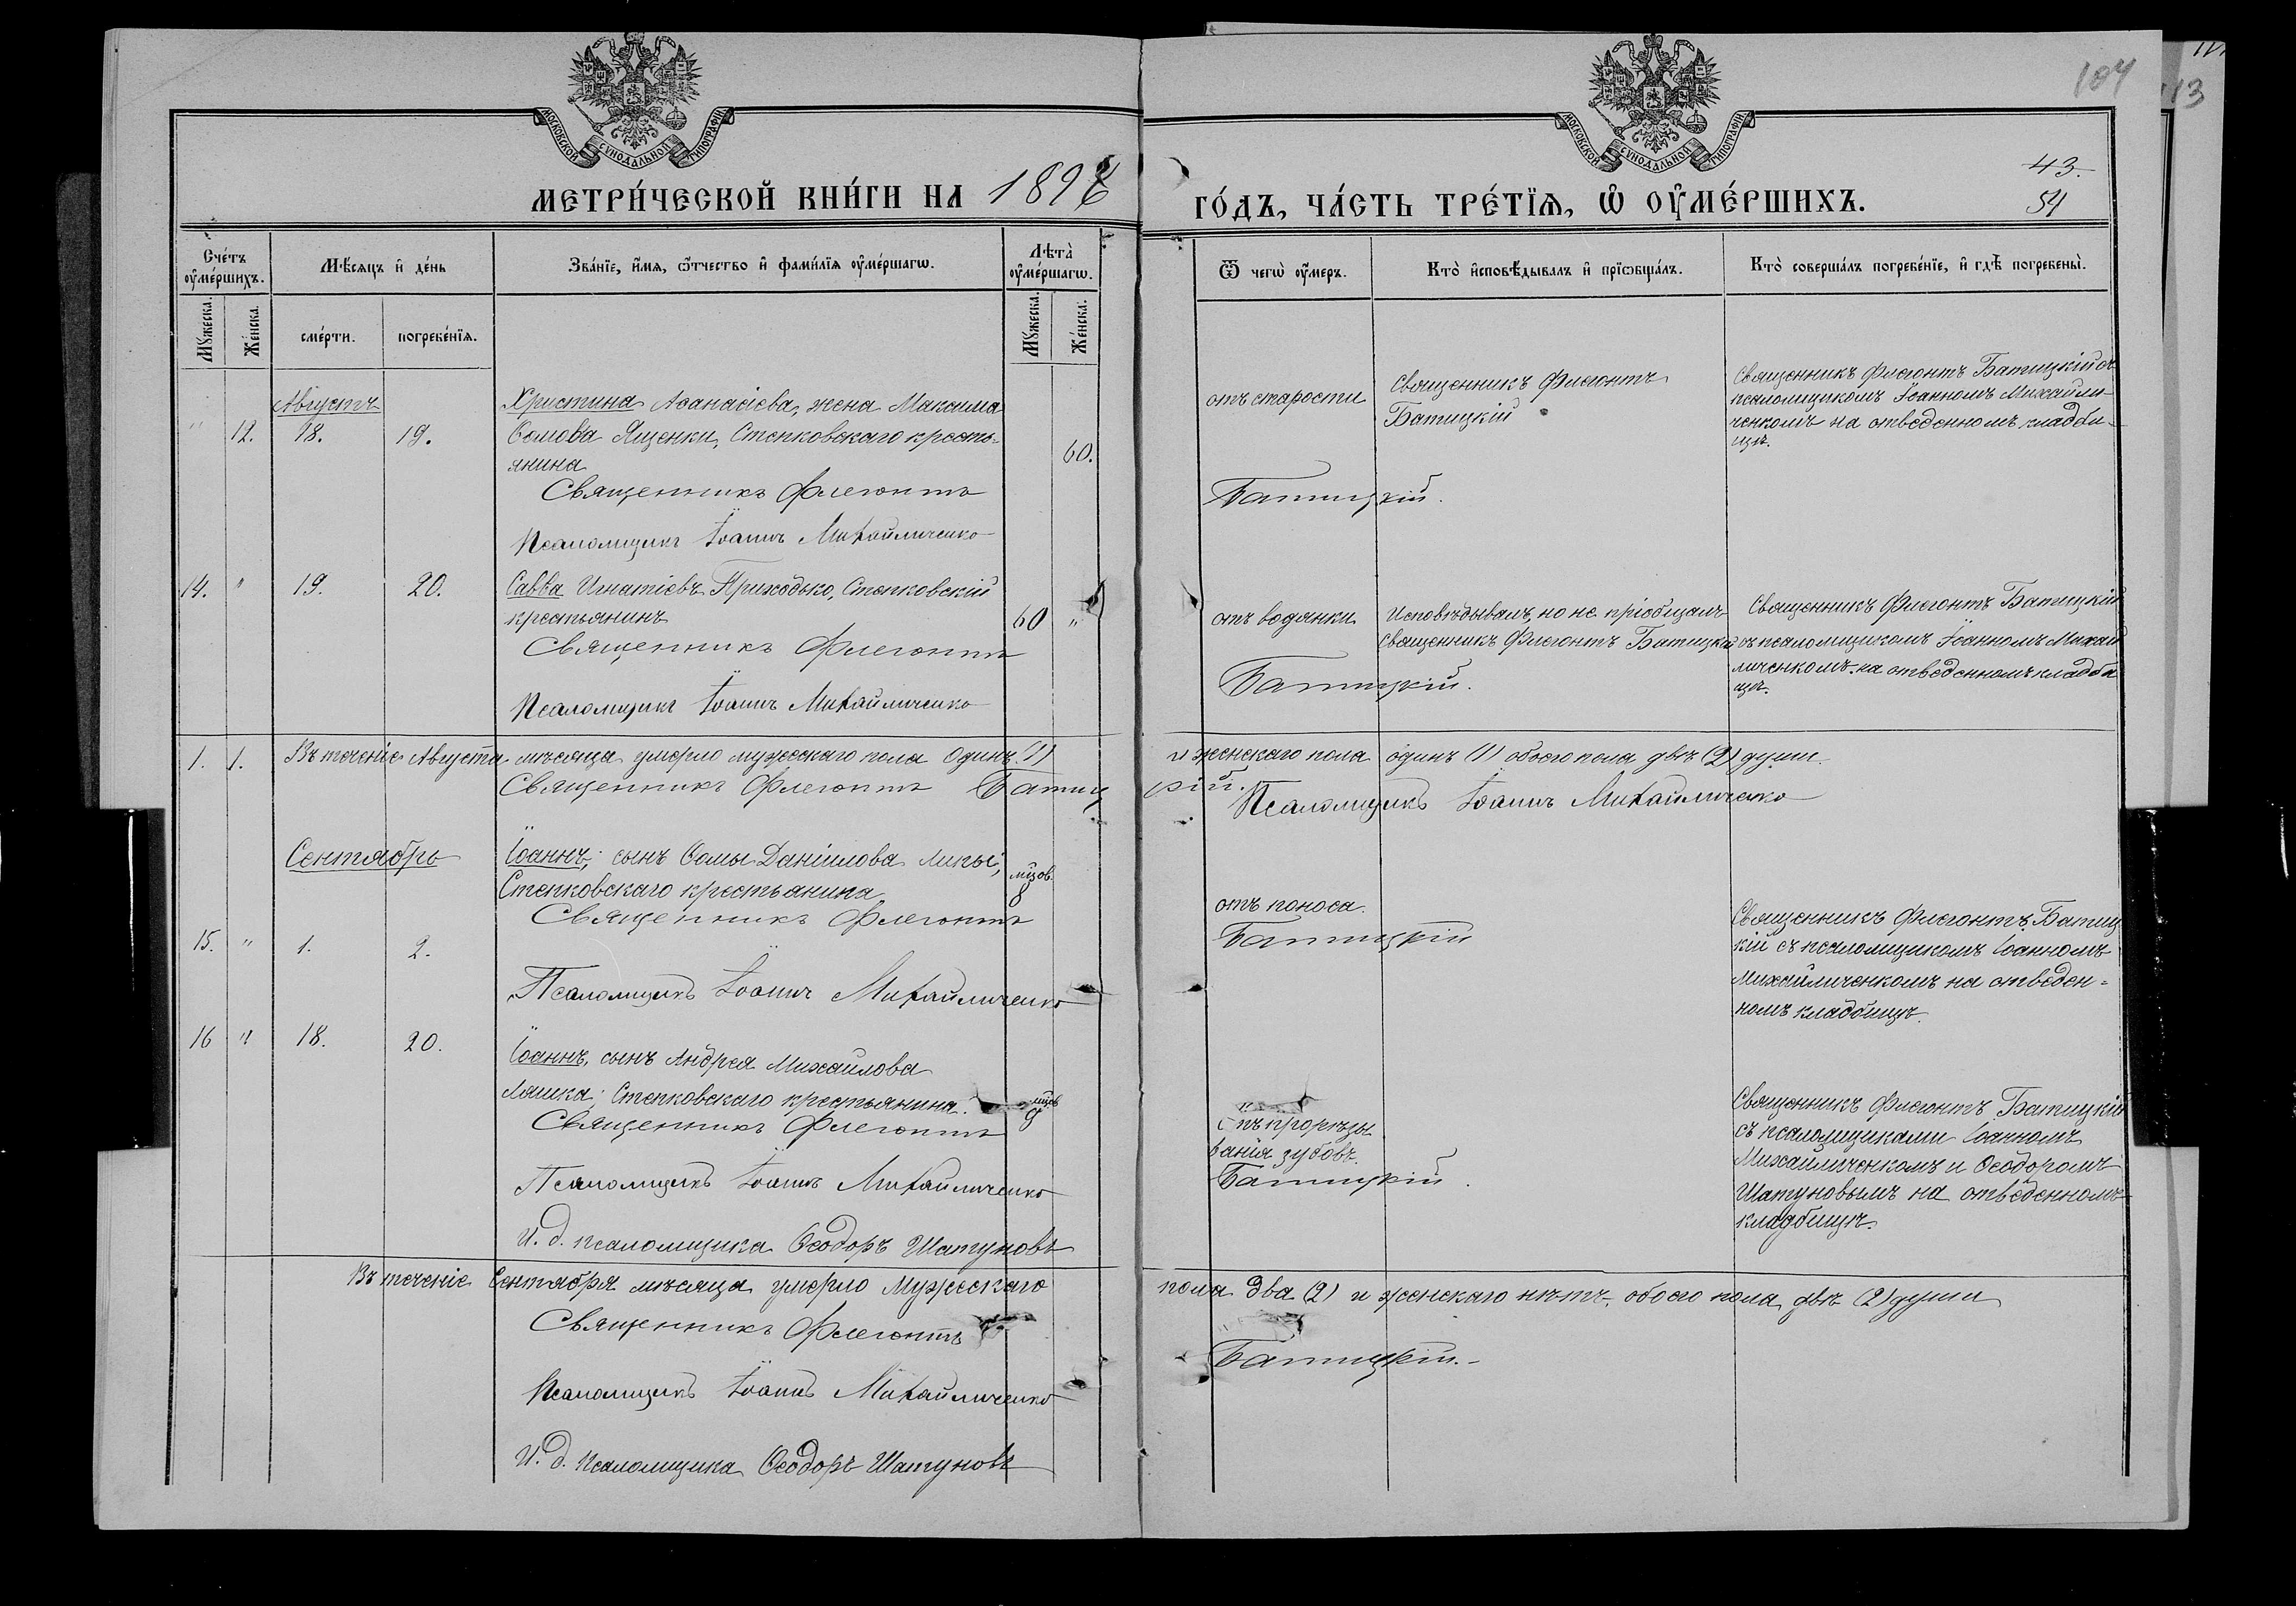 104
13
МОСКОВСКОЙ СУНОДАЛЬНОЙ ТИПОГРАФІИ
МОСКОВСКОЙ СУНОДАЛЬНОЙ ТИПОГРАФІИ
МЕТРИ́ЧЕСКОЙ КНИ́ГИ НА 189
ГО́ДЪ, ЧА́СТЬ ТРЕ́ТЇѦ, Ѡ҆ ОУ҆МЕ́РШИХЪ.
43.
54
Сче́тъ оу҆ме́ршихъ.
Мꙋ́жеска.
Же́нска.
Мѣ́сѧцъ и҆ де́нь
сме́рти.
погребе́нїѧ.
Зва́нїе, и҆́мѧ, ѻ҆́тчество и҆ фами́лїѧ оу҆ме́ршагѡ.
Лѣта̀ оу҆ме́ршагѡ.
Мꙋ́жеска.
Же́нска.
Ѿ чегѡ̀ оу҆́меръ.
Кто̀ и҆сповѣ́дывалъ и҆ прїѡбща́лъ.
Кто̀ соверша́лъ погребе́нїе, и҆ гдѣ̀ погребены̀.
Августъ
" 12. 18. 19.
Христина Аѳанасіева, жена Максима
Ѳомова Яценки, Степковскаго кресть-
янина
60.
Священникъ Флегонтъ
Батицкій.
Псаломщикъ Іоаннъ Михайличенко
отъ старости
Священникъ Флегонтъ
Батицкій
Священникъ Флегонтъ Батицкій съ
псаломщикомъ Іоанномъ Михайли-
ченкомъ на отведенномъ кладби-
щѣ.
14. " 19. 20.
Савва Игнатіевъ Приходько, Степковскій
крестьянинъ
60 "
Священникъ Флегонтъ
Батицкій.
Псаломщикъ Іоаннъ Михайличенко
отъ водянки
Исповѣдывалъ, но не пріобщалъ
Священникъ Флегонтъ Батицкій
Священникъ Флегонтъ Батицкій
съ псаломщикомъ Іоанномъ Михай
личенкомъ на отведенномъ кладби
щѣ.
1. 1. Въ теченіе Августа мѣсяца умерло мужескаго пола одинъ (1) и женскаго пола одинъ (1) обоего пола двѣ (2) души.
Священникъ Флегонтъ Батицкій.
Псаломщикъ Іоаннъ Михайличенко
Сентябрь
15. " 1. 2.
Іоаннъ, сынъ Ѳомы Даніилова Лыкы,
Степковскаго крестьянина
мцов.
8
Священникъ Флегонтъ
Батицкій
Псаломщикъ Іоаннъ Михайличенко
отъ поноса.
Священникъ Флегонтъ Батиц
кій съ псаломщикомъ Іоанномъ
Михайличенкомъ на отведен-
номъ кладбищѣ.
16 " 18. 20.
Іоаннъ, сынъ Андрея Михайлова
Ляшка, Степковскаго крестьянина.
мцов
9
Священникъ Флегонтъ
Батицкій.
Псаломщикъ Іоаннъ Михайличенко
И. д. псаломщика Ѳеодоръ Шатуновъ
прорѣзы
ванія зубовъ.
Священникъ Флегонтъ Батицкій
съ псаломщиками Іоанномъ
Михайличенкомъ и Ѳеодоромъ
Шатуновымъ на отведенномъ
кладбищѣ.
Въ теченіе Сентября мѣсяца умерло Мужескаго пола два (2) и женскаго нѣтъ, обоего пола двѣ (2) души
Священникъ Флегонтъ
Батицкій.
Псаломщикъ Іоаннъ Михайличенко
И. д. псаломщика Ѳеодоръ Шатуновъ